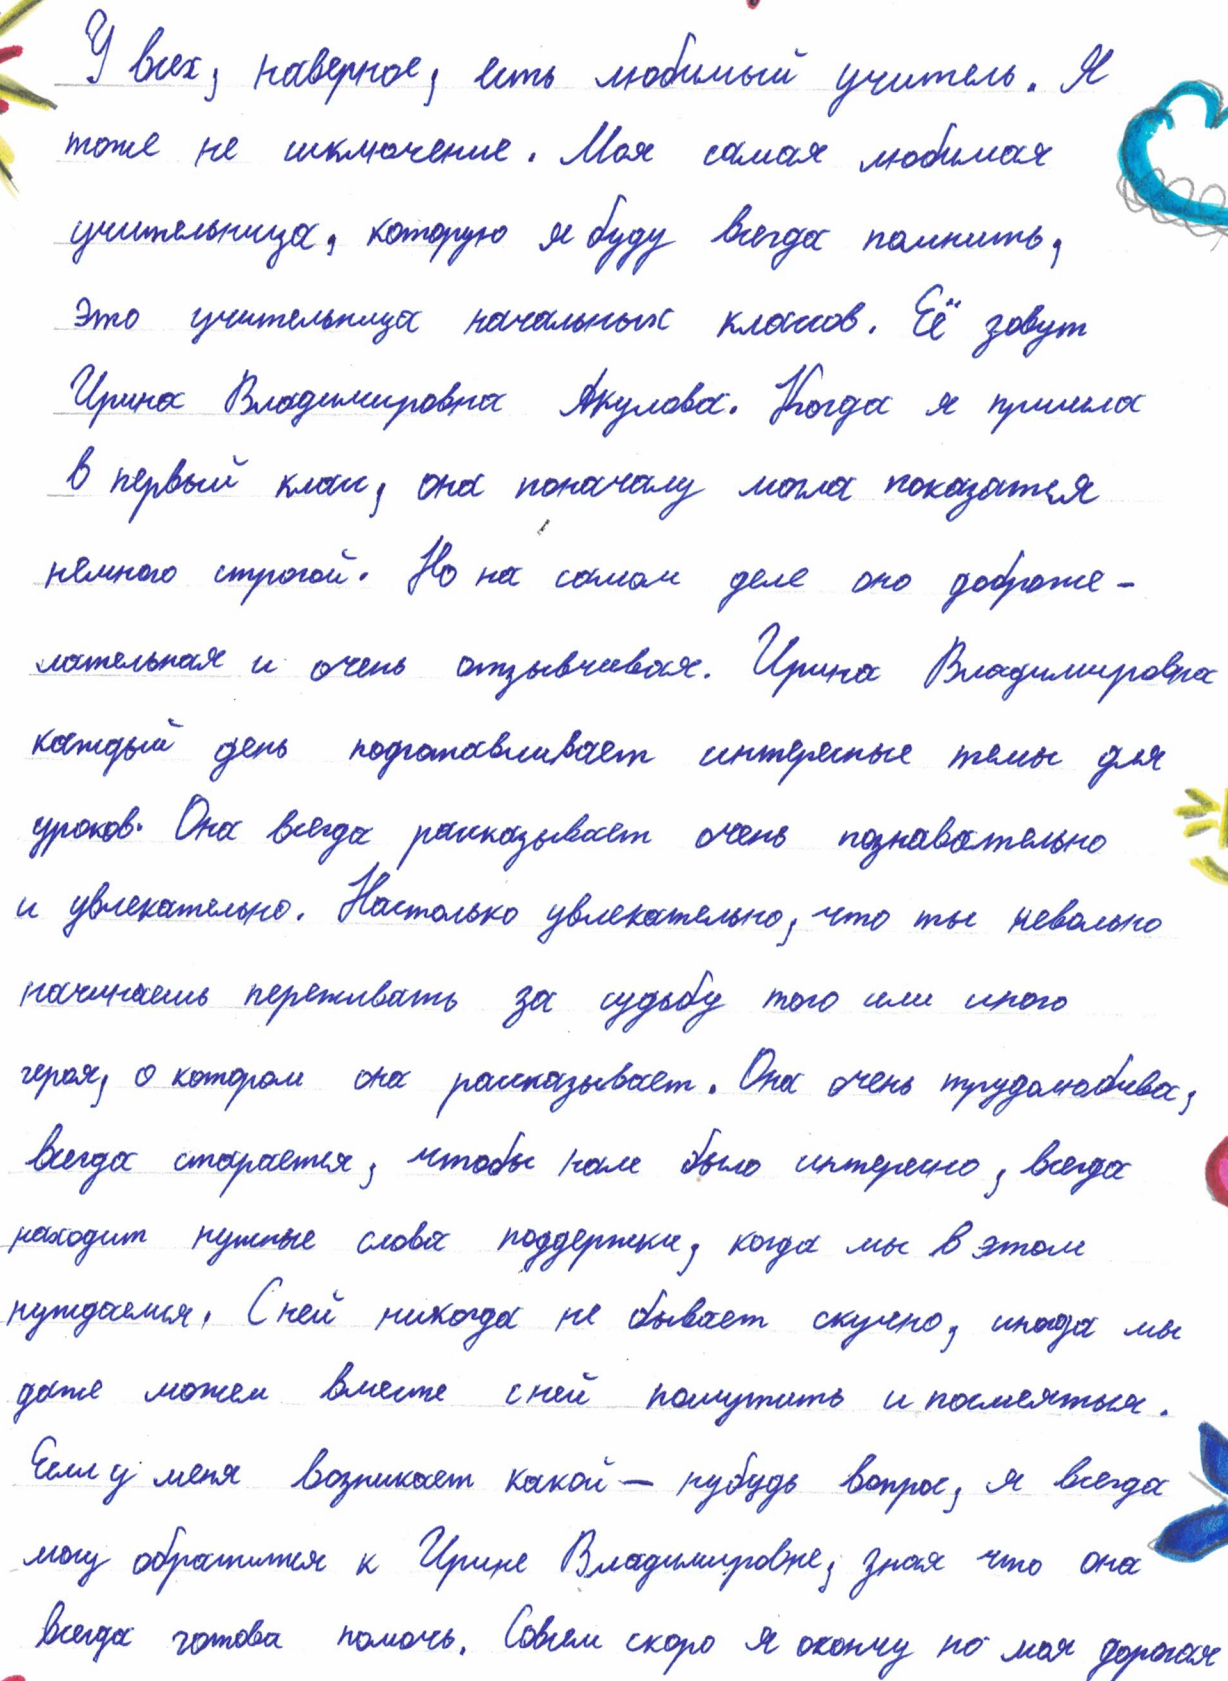 У всех, наверное, есть любимый учитель. Я
тоже не исключение. Моя самая любимая
учительница, которую я буду всегда помнить,
это учительница начальных классов. Её зовут
Ирина Владимировна Акулова. Когда я пришла
в первый класс, она поначалу могла показатся
немного строгой. Но на самом деле оно доброже-
лательная и очень отзывчивая. Ирина Владимировна
каждый день подготавливает интересные темы для
уроков. Она всегда рассказывает очень познавательно
и увлекательно. Настолько увлекательно, что ты невольно
начинаешь переживать за судьбу того или иного
героя, о котором она рассказывает. Она очень трудолюбива,
всегда старается, чтобы нам было интересно, всегда
находит нужные слова поддержки, когда мы в этом
нуждаемся. С ней никогда не бывает скучно, иногда мы
даже можем вместе с ней пошутить и посмеяться.
Если у меня возникает какой-нубудь вопрос, я всегда
могу обратится к Ирине Владимировне, зная что она
всегда готова помочь. Совсем скоро я окончу но моя дорогая